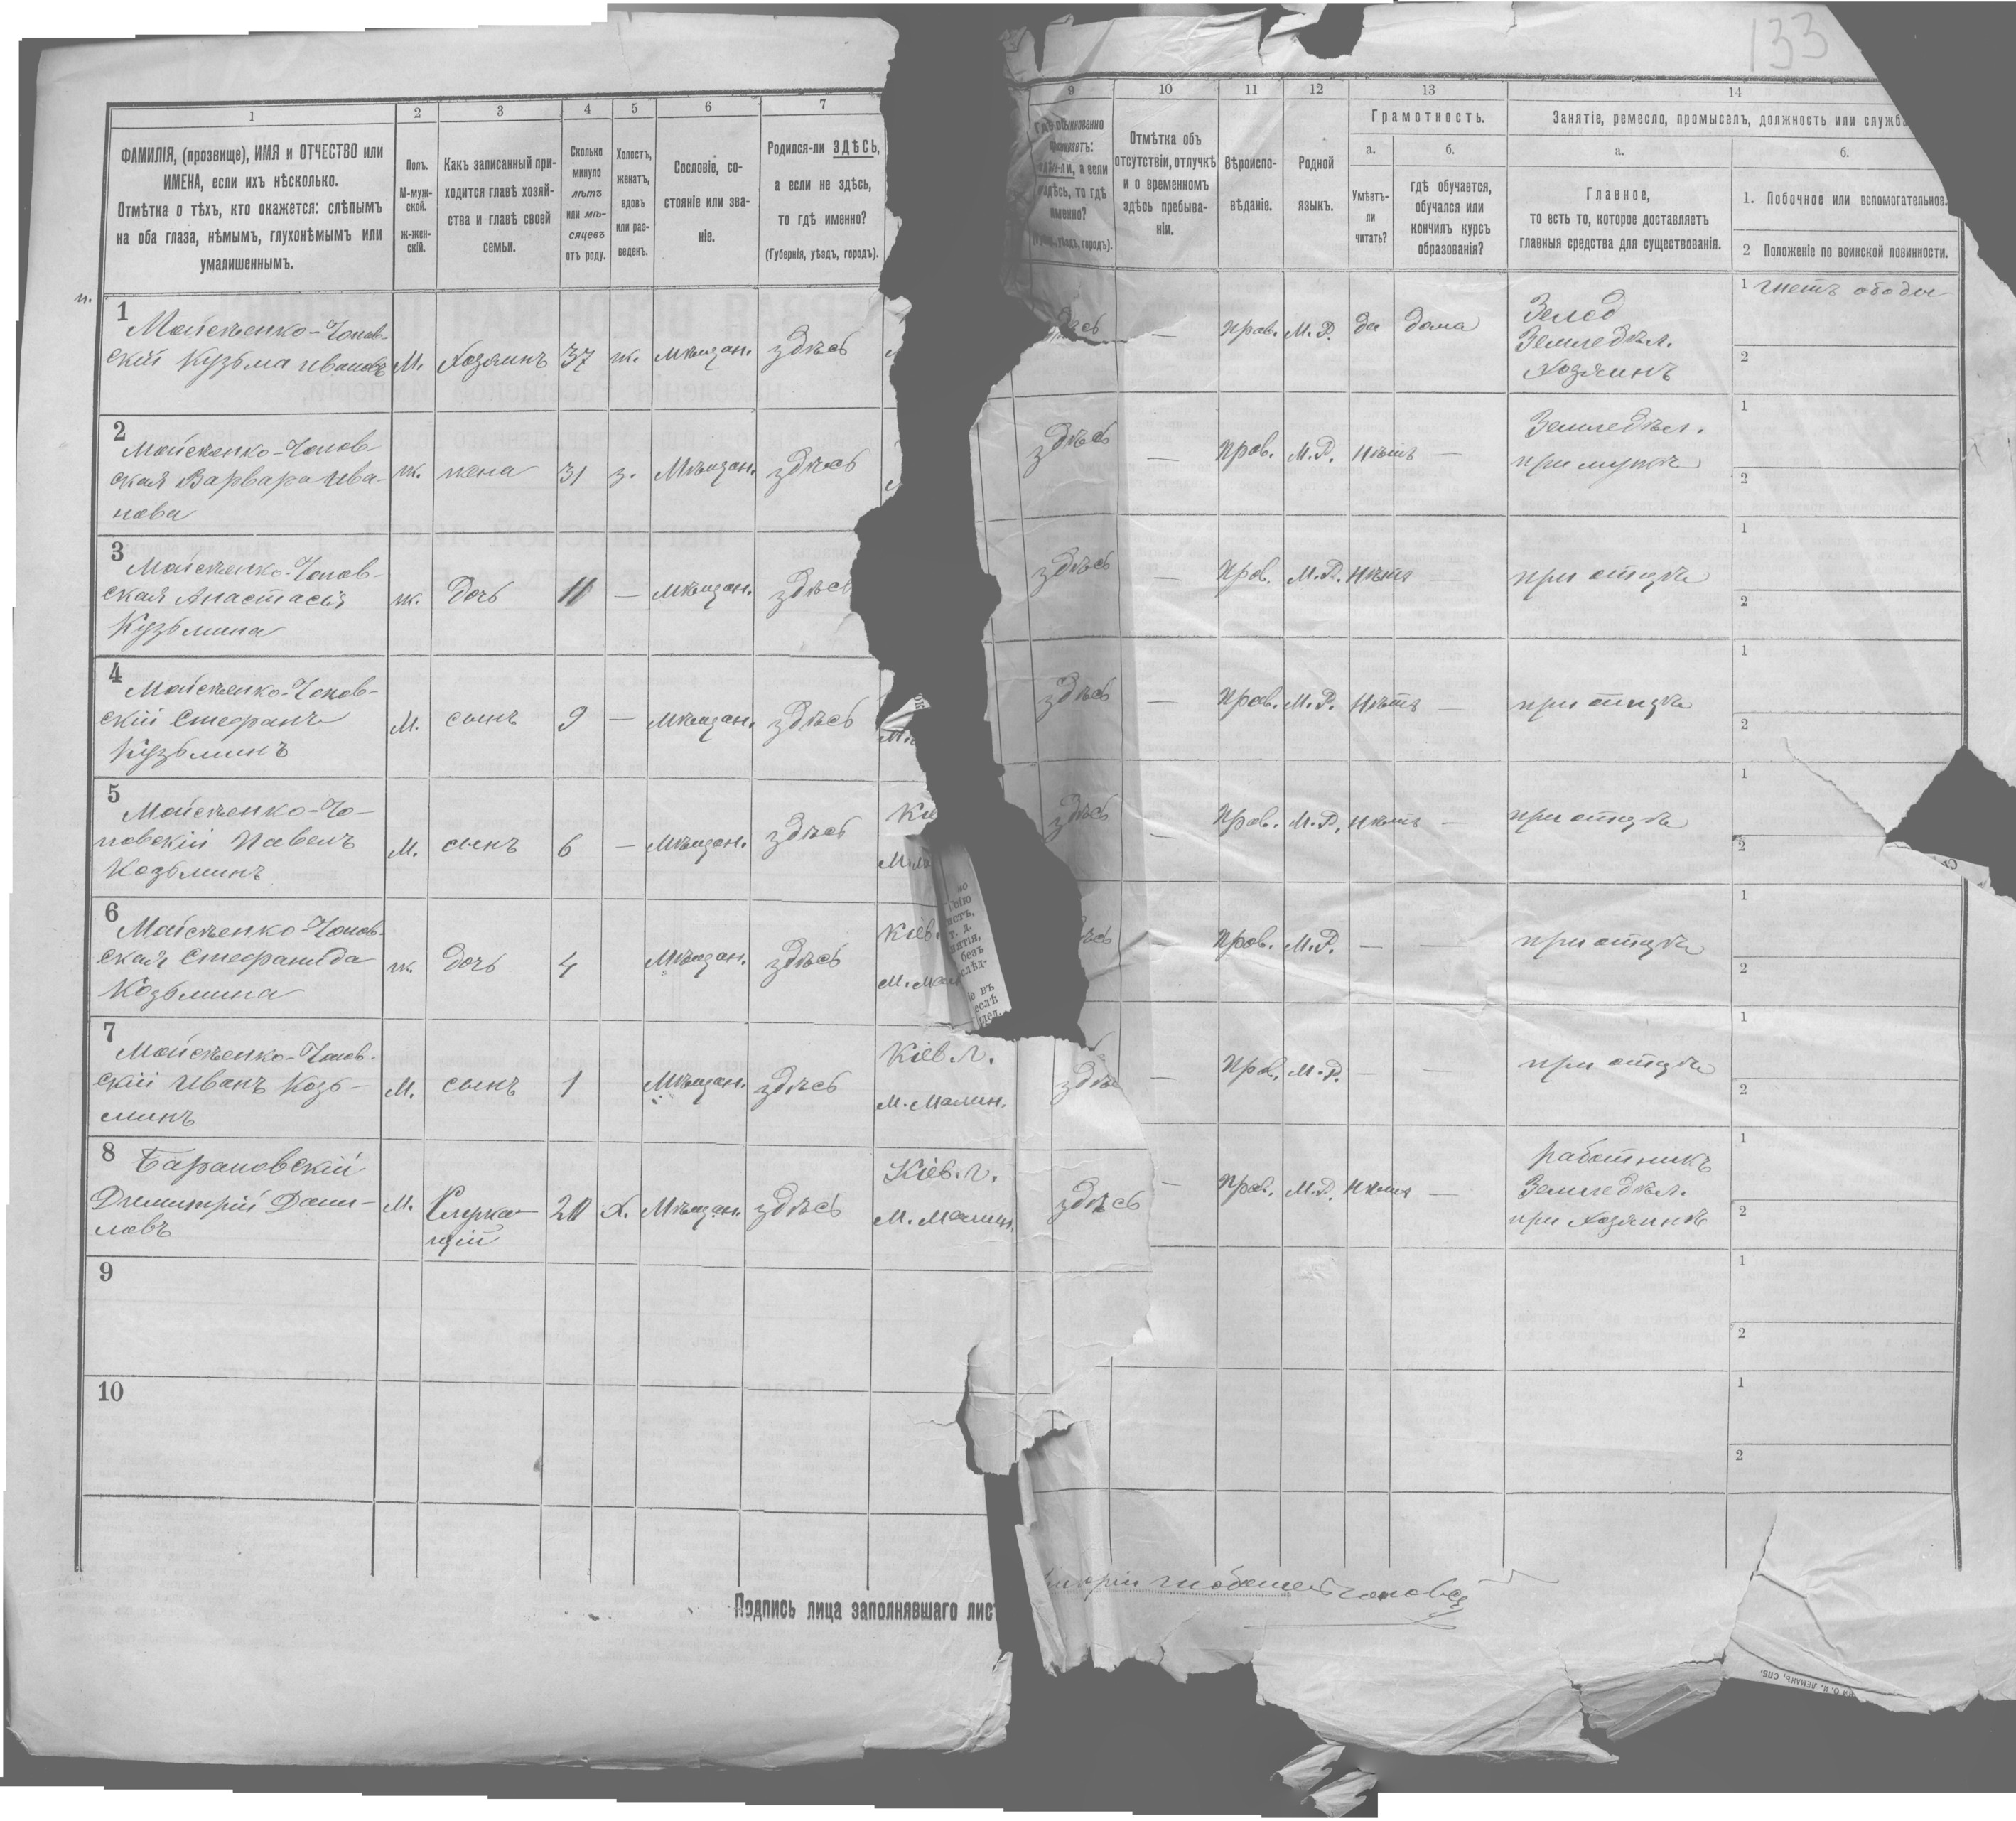 133
1
2
3
4
5
6
7
9
10
11
12
13
14
ФАМИЛІЯ, (прозвище), ИМЯ и ОТЧЕСТВО или
ИМЕНА, если ихъ нѣсколько.
Отмѣтка о тѣхъ, кто окажется: слѣпымъ
на оба глаза, нѣмымъ, глухонѣмымъ или
умалишеннымъ.
Полъ.
М-муж-
ской.
ж-жен-
скій.
Какъ записанный при-
ходится главѣ хозяй-
ства и главѣ своей
семьи.
Сколько
минуло
лѣтъ
или мѣ-
сяцевъ
отъ роду.
Холостъ,
женатъ,
вдовъ
или раз-
веденъ.
Сословіе, со-
стояніе или зва-
ніе.
Родился-ли ЗДѢСЬ,
а если не здѣсь,
то гдѣ именно?
(Губернія, уѣздъ, городъ).
Гдѣ обыкновенно
а если
то гдѣ
именно?
уѣздъ, городъ).
Отмѣтка объ
отсутствіи, отлучкѣ
и о временномъ
здѣсь пребыва-
ніи.
Вѣроиспо-
вѣданіе.
Родной
языкъ.
Грамотность.
а.
Умѣетъ-
ли
читать?
б.
гдѣ обучается,
обучался или
кончилъ курсъ
образованія?
Занятіе, ремесло, промыселъ, должность или служба
а.
Главное,
то есть то, которое доставляетъ
главныя средства для существованія.
б.
1. Побочное или вспомогательное.
2 Положеніе по воинской повинности.
1
Мойсѣенко-Чопов-
скій Кузьма Ивановъ
М. Хозяинъ 37 ж. Мѣщан. здѣсь
— прав. М.Р. да дома
Землед
Земледѣл.
Хозяинъ
1
2
2
Мойсѣенко-Чопов-
ская Варвара Ива-
нова
ж. жена 31 з. Мѣщан. здѣсь
здѣсь — прав. М.Р. нѣтъ —
Земледѣл.
при мужѣ
1
2
3
Мойсѣенко-Чопов-
ская Анастасія
Кузьмина
ж. дочь 11 — Мѣщан. здѣсь
здѣсь — прав. М.Р. нѣтъ
при отцѣ
1
2
4
Мойсѣенко-Чопов-
скій Стефанъ
Кузьминъ
М. сынъ 9 — Мѣщан. здѣсь
здѣсь — прав. М.Р. нѣтъ —
при отцѣ
1
2
5
Мойсѣенко-Чо-
повскій Павелъ
Козьминъ
М. сынъ 6 — Мѣщан. здѣсь
здѣсь — прав. М.Р. нѣтъ —
при отцѣ
1
2
6
Мойсѣенко-Чопов-
ская Стефанида
Козьмина
ж. дочь 4 Мѣщан. здѣсь
Кіев.
прав. М.Р. — —
при отцѣ
1
2
7
Мойсѣенко-Чопов-
скій Иванъ Козь-
минъ
М. сынъ 1 Мѣщан. здѣсь
Кіев. г.
М. Малин.
— прав. М.Р. — —
при отцѣ
1
2
8
Барановскій
Дмитрій Дани-
ловъ
М. Служа-
щій
20 Х. Мѣщан. здѣсь
Кіев. г.
М. Малин.
здѣсь — прав. М.Р. нѣтъ —
работникъ
Земледѣл.
при Хозяинѣ
1
2
9
1
2
10
1
2
Подпись лица заполнявшаго лист